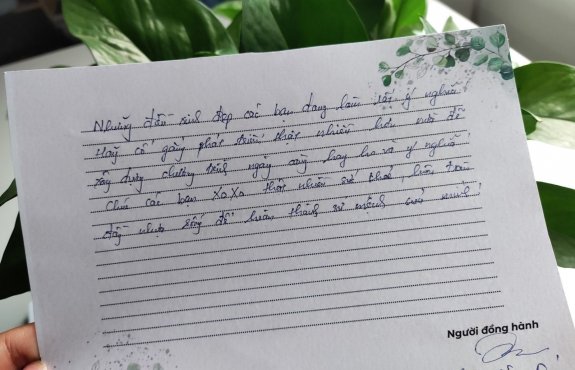 Những điều xinh đẹp các bạn đang làm rất ý nghĩa.
Hãy cố gắng phát triển thật nhiều hơn nữa để
xây dựng chương trình ngày càng hay ho và ý nghĩa!
Chúc các bạn XoXo thật nhiều sức khoẻ, luôn tràn
đầy nhựa sống để hoàn thành sứ mệnh của mình!
Người đồng hành